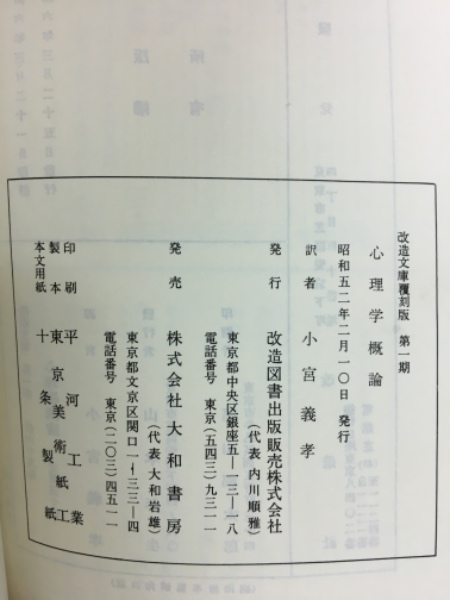 改造文庫覆刻版 第一期
心理学概論
昭和五二年二月一〇日 発行
訳者 小宮義孝
発行 改造図書出版販売株式会社
(代表 内川順雅)
東京都中央区銀座五―一三―一八
電話番号 東京(五四三)九三一一
発売 株式会社 大和書房
(代表 大和岩雄)
東京都文京区関口一―三三―四
電話番号 東京(二〇三)四五一一
印刷 平河工業
製本 東京美術紙工
本文用紙 十条製紙